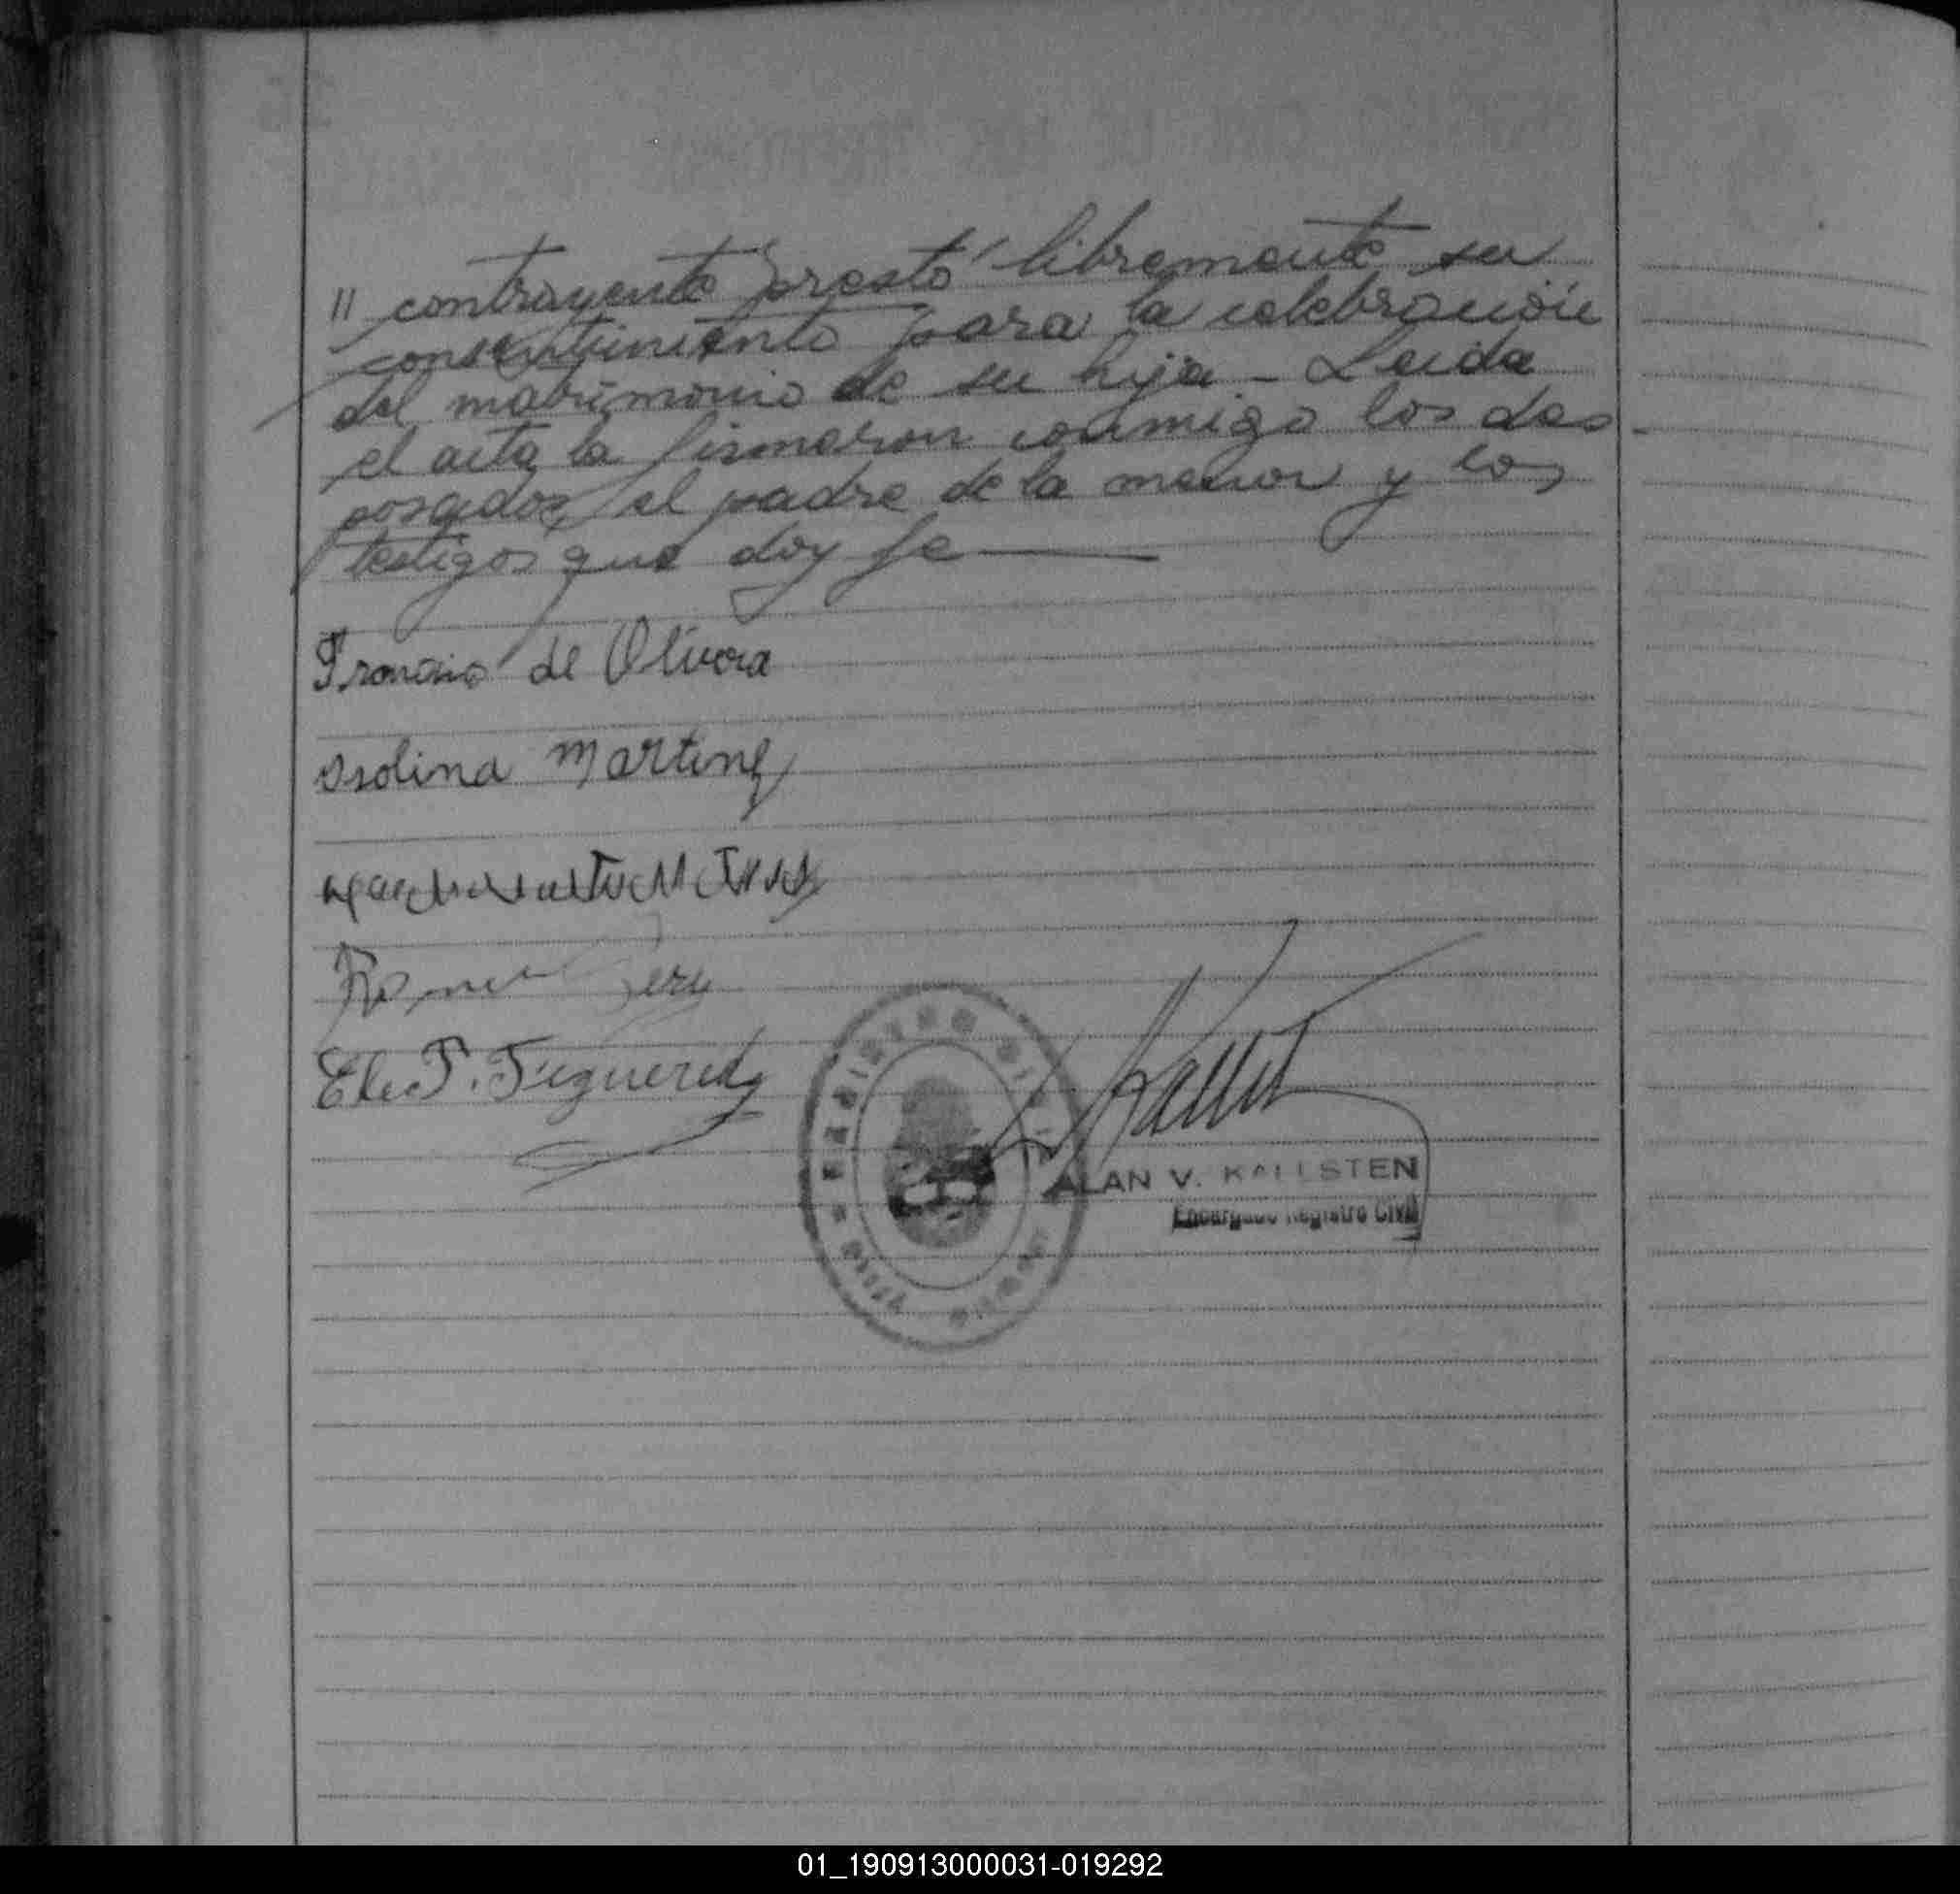 " contrayente prestó libremente su
consentimiento para la celebración
del matrimonio de su hija - Leida
el acta la firmaron conmigo los des
posados, el padre de la menor y los
testigos que doy fe
Francisio de Olivera
Isolina Martinez
Elec P. Figueredo
REGISTRO
ALAN V. KALLSTEN
Encargado Registro Civil
01_190913000031-019292